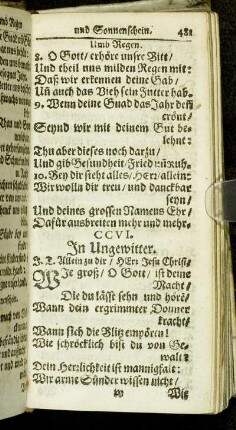 und Sonnenschein. 481
Umb Regen.
8. O Gott/ erhöre unsre Bitt/
Und theil uns milden Regen mit:
Daß wir erkennen deine Gab/
Uñ auch das Vieh sein Futter hab.
9. Wenn deine Gnad das Jahr deñ
crönt/
Seynd wir mit deinem Gut be-
lehnt:
Thu aber dieses noch darzu/
Und gib Gesundheit/ Fried
10. Bey dir steht alles/ HErr/ allein:
Wir wolln dir treu/ und danckbar
seyn/
Und deines grossen Namens Ehr/
Dafür ausbreiten mehr und mehr.
CCVI.
In Ungewitter.
J. T. Allein zu dir/ HErr Jesu Christ/
WIe groß/ O Gott/ ist deine
Macht/
Die du lässt sehn und hörē/
Wann dein ergrimmeter Donner
kracht/
Wann sich die Blitz empören!
Wie schröcklich bist du von Ge-
walt?
Dein Herrlichkeit ist mannigfalt:
Wir arme Sünder wissen nicht/